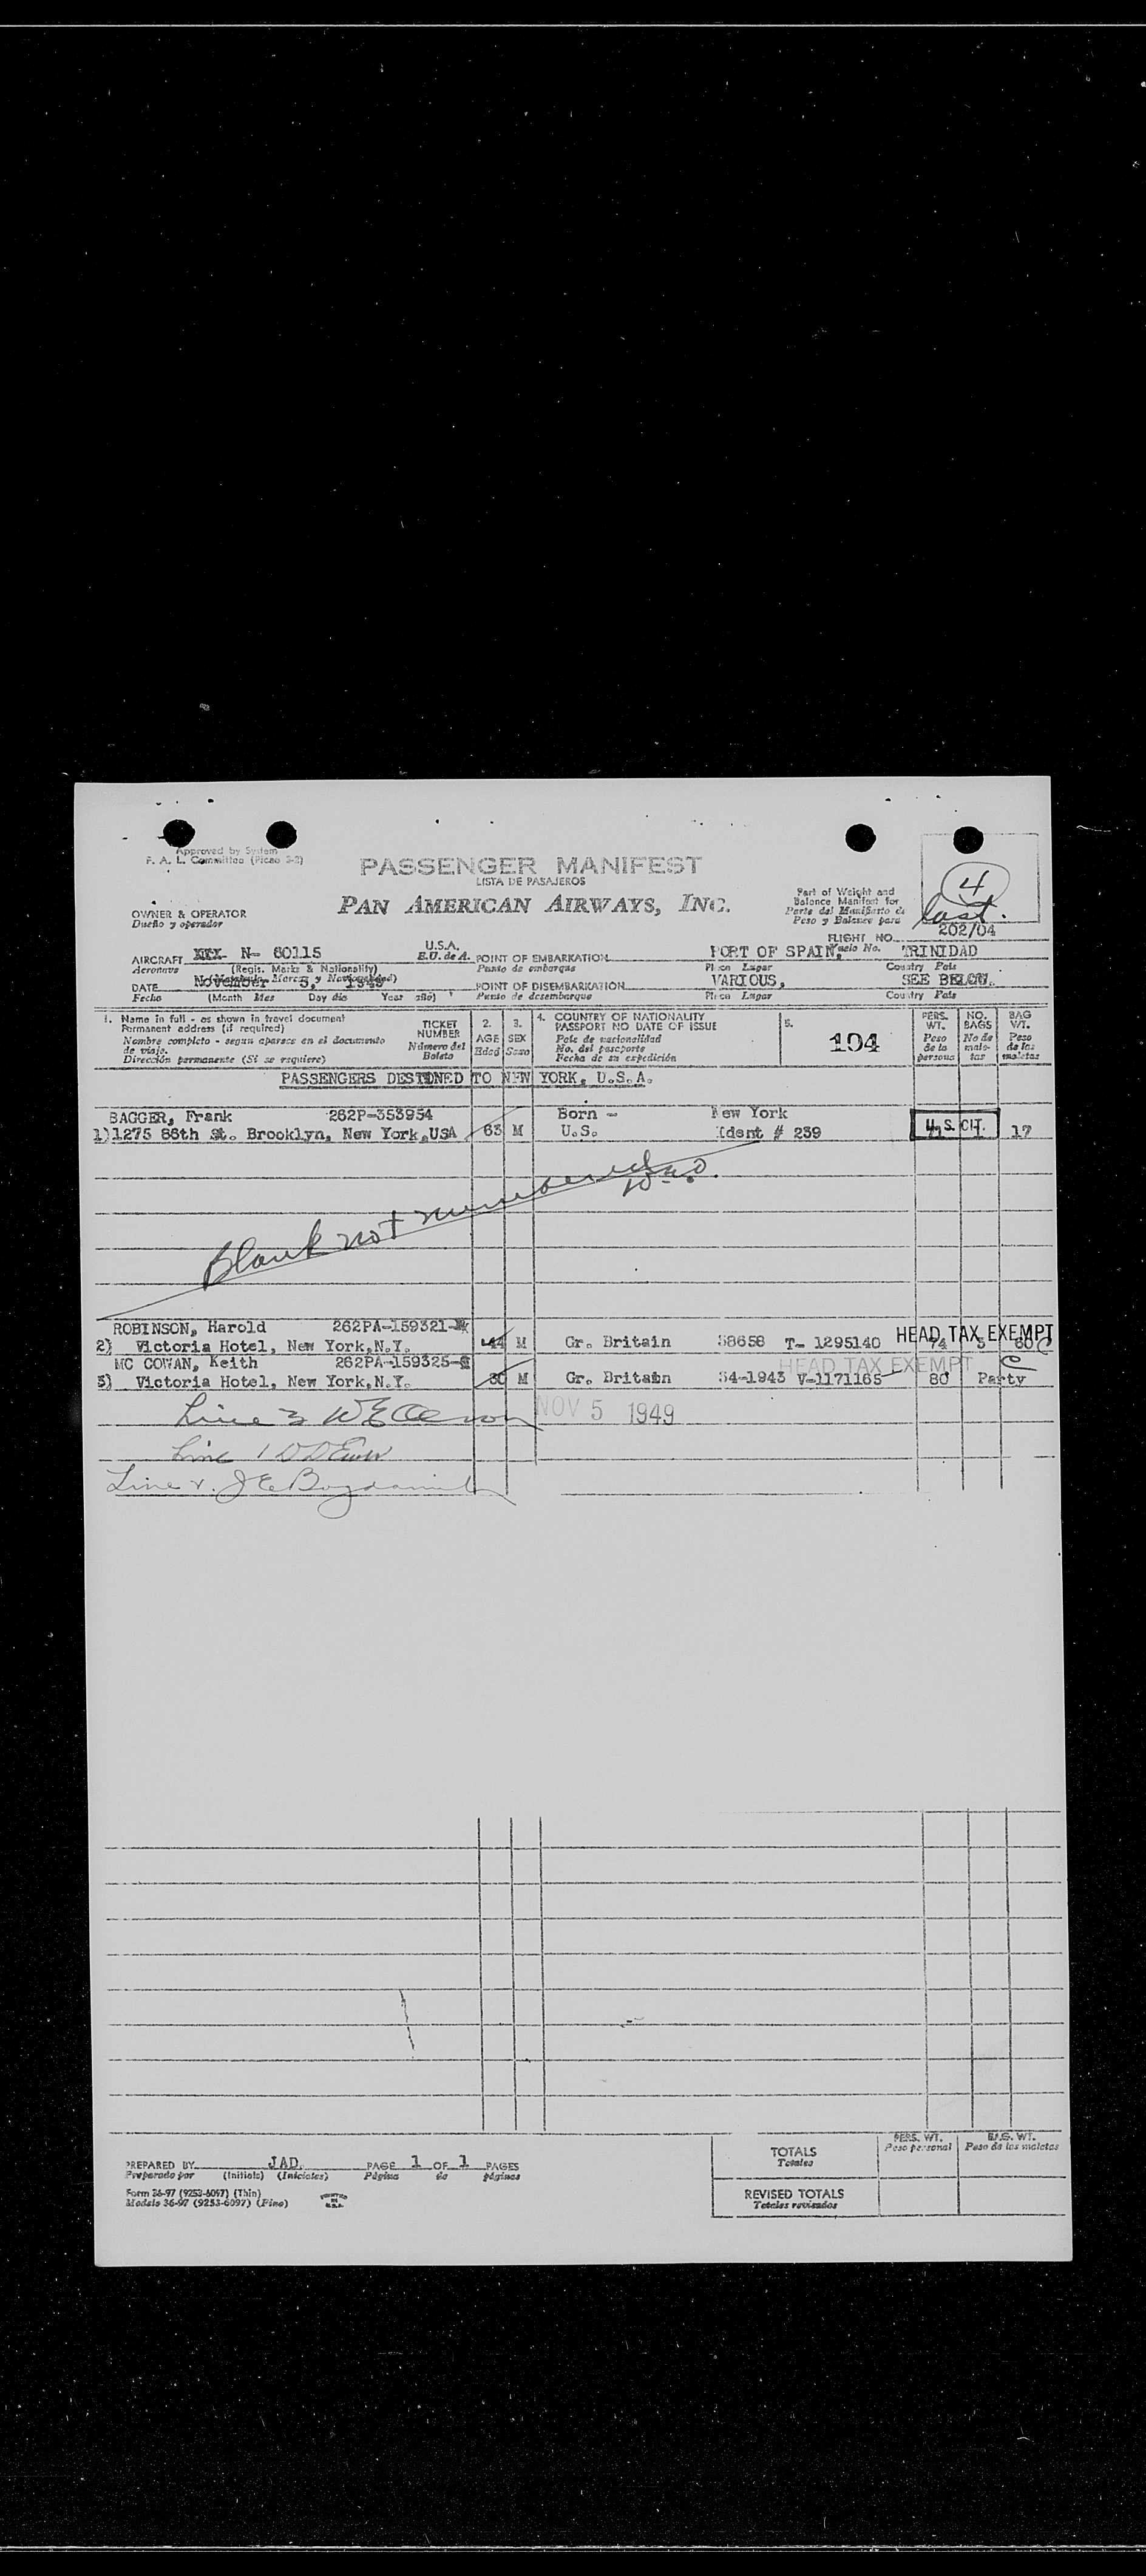 Approved by System
F. A. L. Committee (Picao 3-2)
PASSENGER MANIFEST
LISTA DE PASAJEROS
PAN AMERICAN AIRWAYS, INC.
Part of Weight and
Balance Manifest for
Parte del Manifiesto de
Peso y Balance para
4
last.
OWNER & OPERATOR
Dueño y operador
FLIGHT NO. 202/04
Vuelo No.
AIRCRAFT N- 60115 U.S.A.
Aeronave (Regis. Marks & Nationality) E.U. de A.
POINT OF EMBARKATION PORT OF SPAIN, TRINIDAD
Punto de embarque Place Lugar Country Pais
DATE November 5, 1949
Fecha (Month Mes Day dia Year año)
POINT OF DISEMBARKATION VARIOUS, SEE BELOW.
Punto de desembarque Place Lugar Country Pais
1. Name in full - as shown in travel document
Permanent address (if required)
Nombre completo - segun aparece en el documento
de viaje.
Dirección permanente (Si se requiere)
TICKET
NUMBER
Número del
Boleto
2.
AGE
Edad
3.
SEX
Sexo
4. COUNTRY OF NATIONALITY
PASSPORT NO DATE OF ISSUE
Pais de nacionalidad
No. del pasaporte
Fecha de su expedición
5.
104
PERS.
WT.
Peso
de la
persona
NO.
BAGS
No de
male-
tas
BAG
WT.
Peso
de las
maletas
PASSENGERS DESTINED TO NEW YORK, U.S.A.
BAGGER, Frank 262P-353954 Born - New York
1) 1275 86th St. Brooklyn, New York,USA 63 M U.S. Ident # 239 U.S. CIT. 17
Blank not numbered
ROBINSON, Harold 262PA-159321-
2) Victoria Hotel, New York,N.Y. 44 M Gr. Britain 38658 T- 1295140 HEAD TAX EXEMPT 74 3 60
MC COWAN, Keith 262PA-159325- HEAD TAX EXEMPT
3) Victoria Hotel, New York,N.Y. 30 M Gr. Britain 34-1943 V-1171165 80 Party
Line 3
NOV 5 1949
Line 1
Line
TOTALS
Totales
PERS. WT.
Peso personal
BAG. WT.
Peso de las maletas
REVISED TOTALS
Totales revisados
PREPARED BY JAD. PAGE 1 OF 1 PAGES
Preparado por (Initials) (Iniciales) Página de páginas
Form 36-97 (9253-6097) (Thin)
Modelo 36-97 (9253-6097) (Fino)